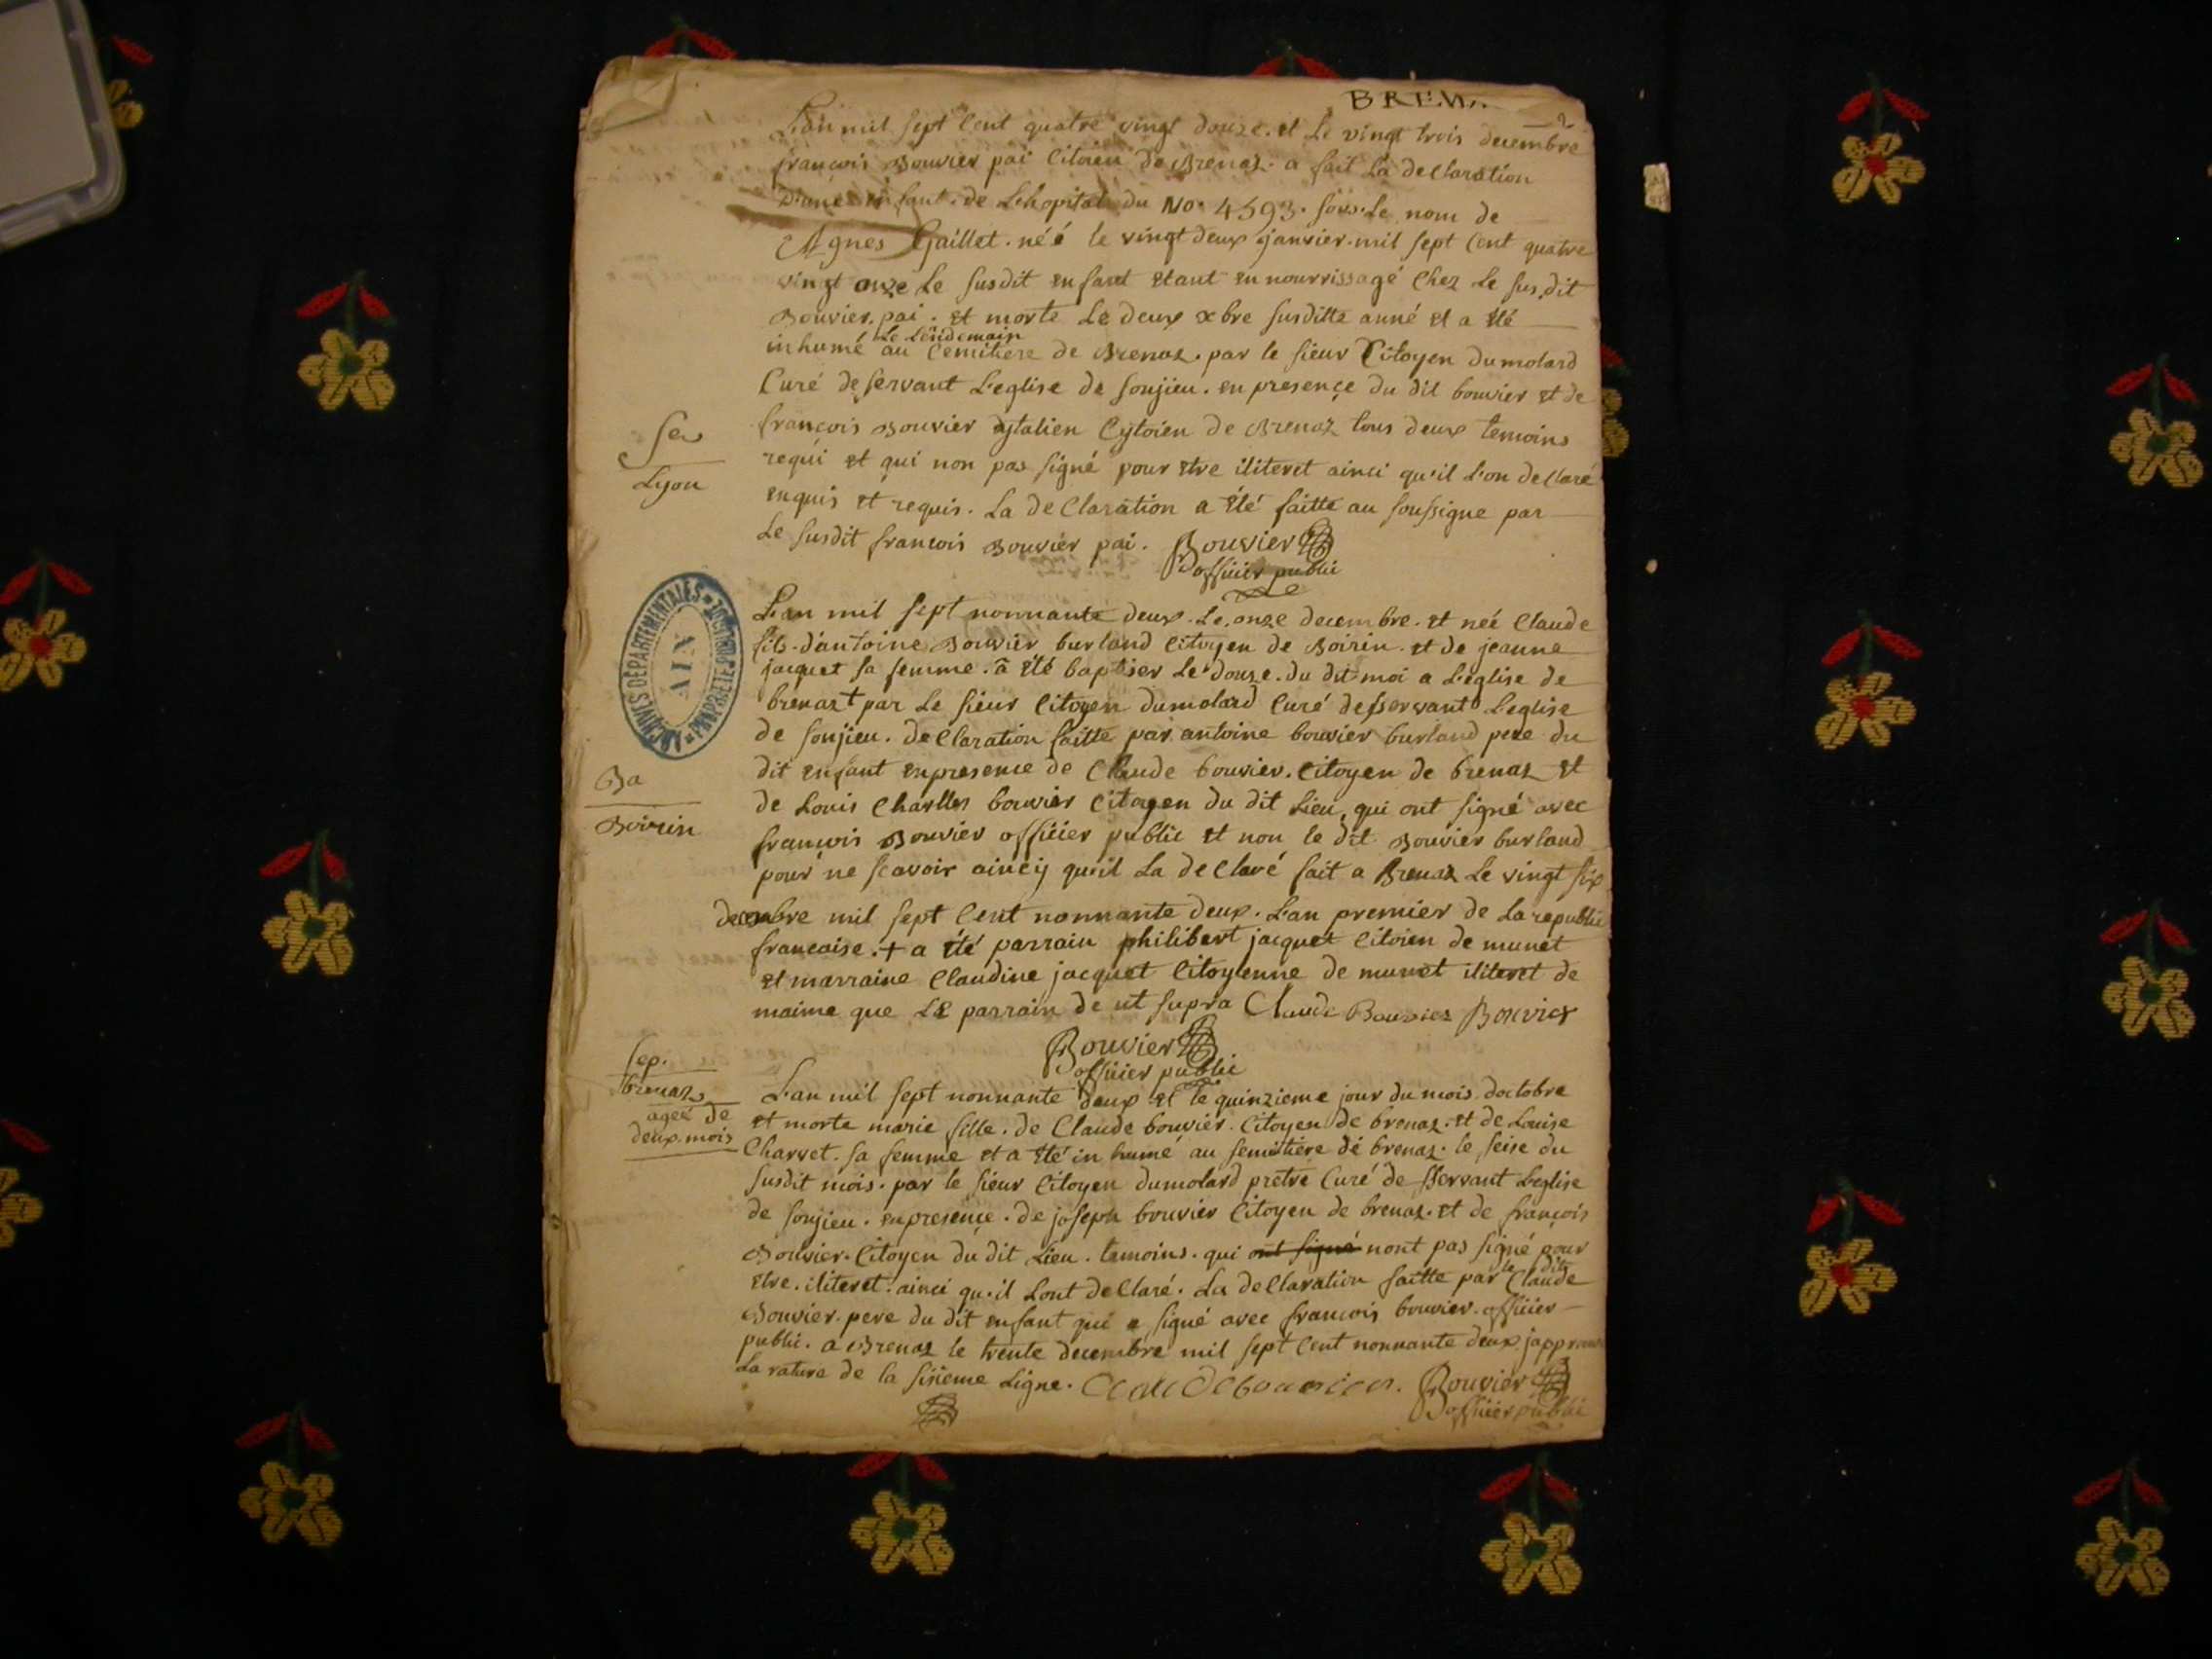 BREN..
2
L'an mil sept Cent quatre vingt douze. et Le vingt trois decembre
françois Bouvier pai Citoien de Brenaz. a fait La declaration
D'une enfant de Lhopital du No. 4593. sous Le nom de
Agnes Gaillet. néé le vingt deux janvier mil sept Cent quatre
vingt onze Le susdit enfant etant en nourrissagé Chez Le susdit
Bouvier pai. et morte Le deux xbre susditte anné et a été
Le Lendemain
inhumé au Cemitiere de Brenaz. par le sieur Citoyen dumolard
Curé deservant L'eglise de Sonjieu. en presençe du dit bouvier et de
françois Bouvier dytalien Cytoien de Brenaz tous deux temoins
requi et qui non pas signé pour etre iliteret ainci qu'il L'on declaré
enquis et requis. La declaration a été faitte au soussigne par
Le susdit francois Bouvier pai. Bouvier
officier public
Se
Lyon
ARCHIVES DÉPARTEMENTALES
AIN
PROPRIÉTÉ PUBLIQUE
L'an mil sept nonnante deux. Le onze decembre. et neé Claude
fils d'antoine Bouvier burland Citoyen de Boirin. et de jeanne
jacquet sa femme. a été baptiser Le douze. du dit moi a L'eglise de
brenaz + par Le sieur Citoyen dumolard Curé desservant L'eglise
de Sonjieu. declaration faitte par antoine bouvier burland pere du
dit enfant enpresence de Claude bouvier. Citoyen de brenaz et
de Louis Charlles bouvier Citoyen du dit Lieu, qui ont signé avec
françois Bouvier officier public et non le dit Bouvier burland
pour ne scavoir aincy qu'il La declaré fait a Brenaz Le vingt six
decembre mil sept Cent nonnante deux. L'an premier de La republic
francaise. + a été parrain philibert jacquet Citoien de munet
et marraine Claudine jacquet Citoyenne de munet iliteret de
maime que LE parrain de ut supra Claude Bouvier Bouvier
Bouvier
officier public
Ba
Boirin
Sep.
brenaz
ageé de
deux mois
L'an mil sept nonnante deux et le quinzieme jour du mois doctobre
et morte marie fille. de Claude bouvier. Citoyen de brenaz. et de Louise
Charvet. sa femme et a été in humé au semitiere dé brenaz. le seise du
susdit mois. par le sieur Citoyen dumolard pretre Curé de sservant L'eglise
de Sonjieu. enpresençe. de joseph bouvier Citoyen de brenaz. et de françois
Bouvier. Citoyen du dit Lieu. temoins. qui ont signé nont pas signé pour
le dit
etre. iliteret. ainci qu'il Lont declaré. La declaration faitte par Claude
Bouvier. pere du dit enfant qui a signé avec francois bouvier. officier
public. a Brenaz le trente decembre mil sept Cent nonnante deux japprouve
La rature de la sisieme Ligne. Claude bouvier. Bouvier
officier public